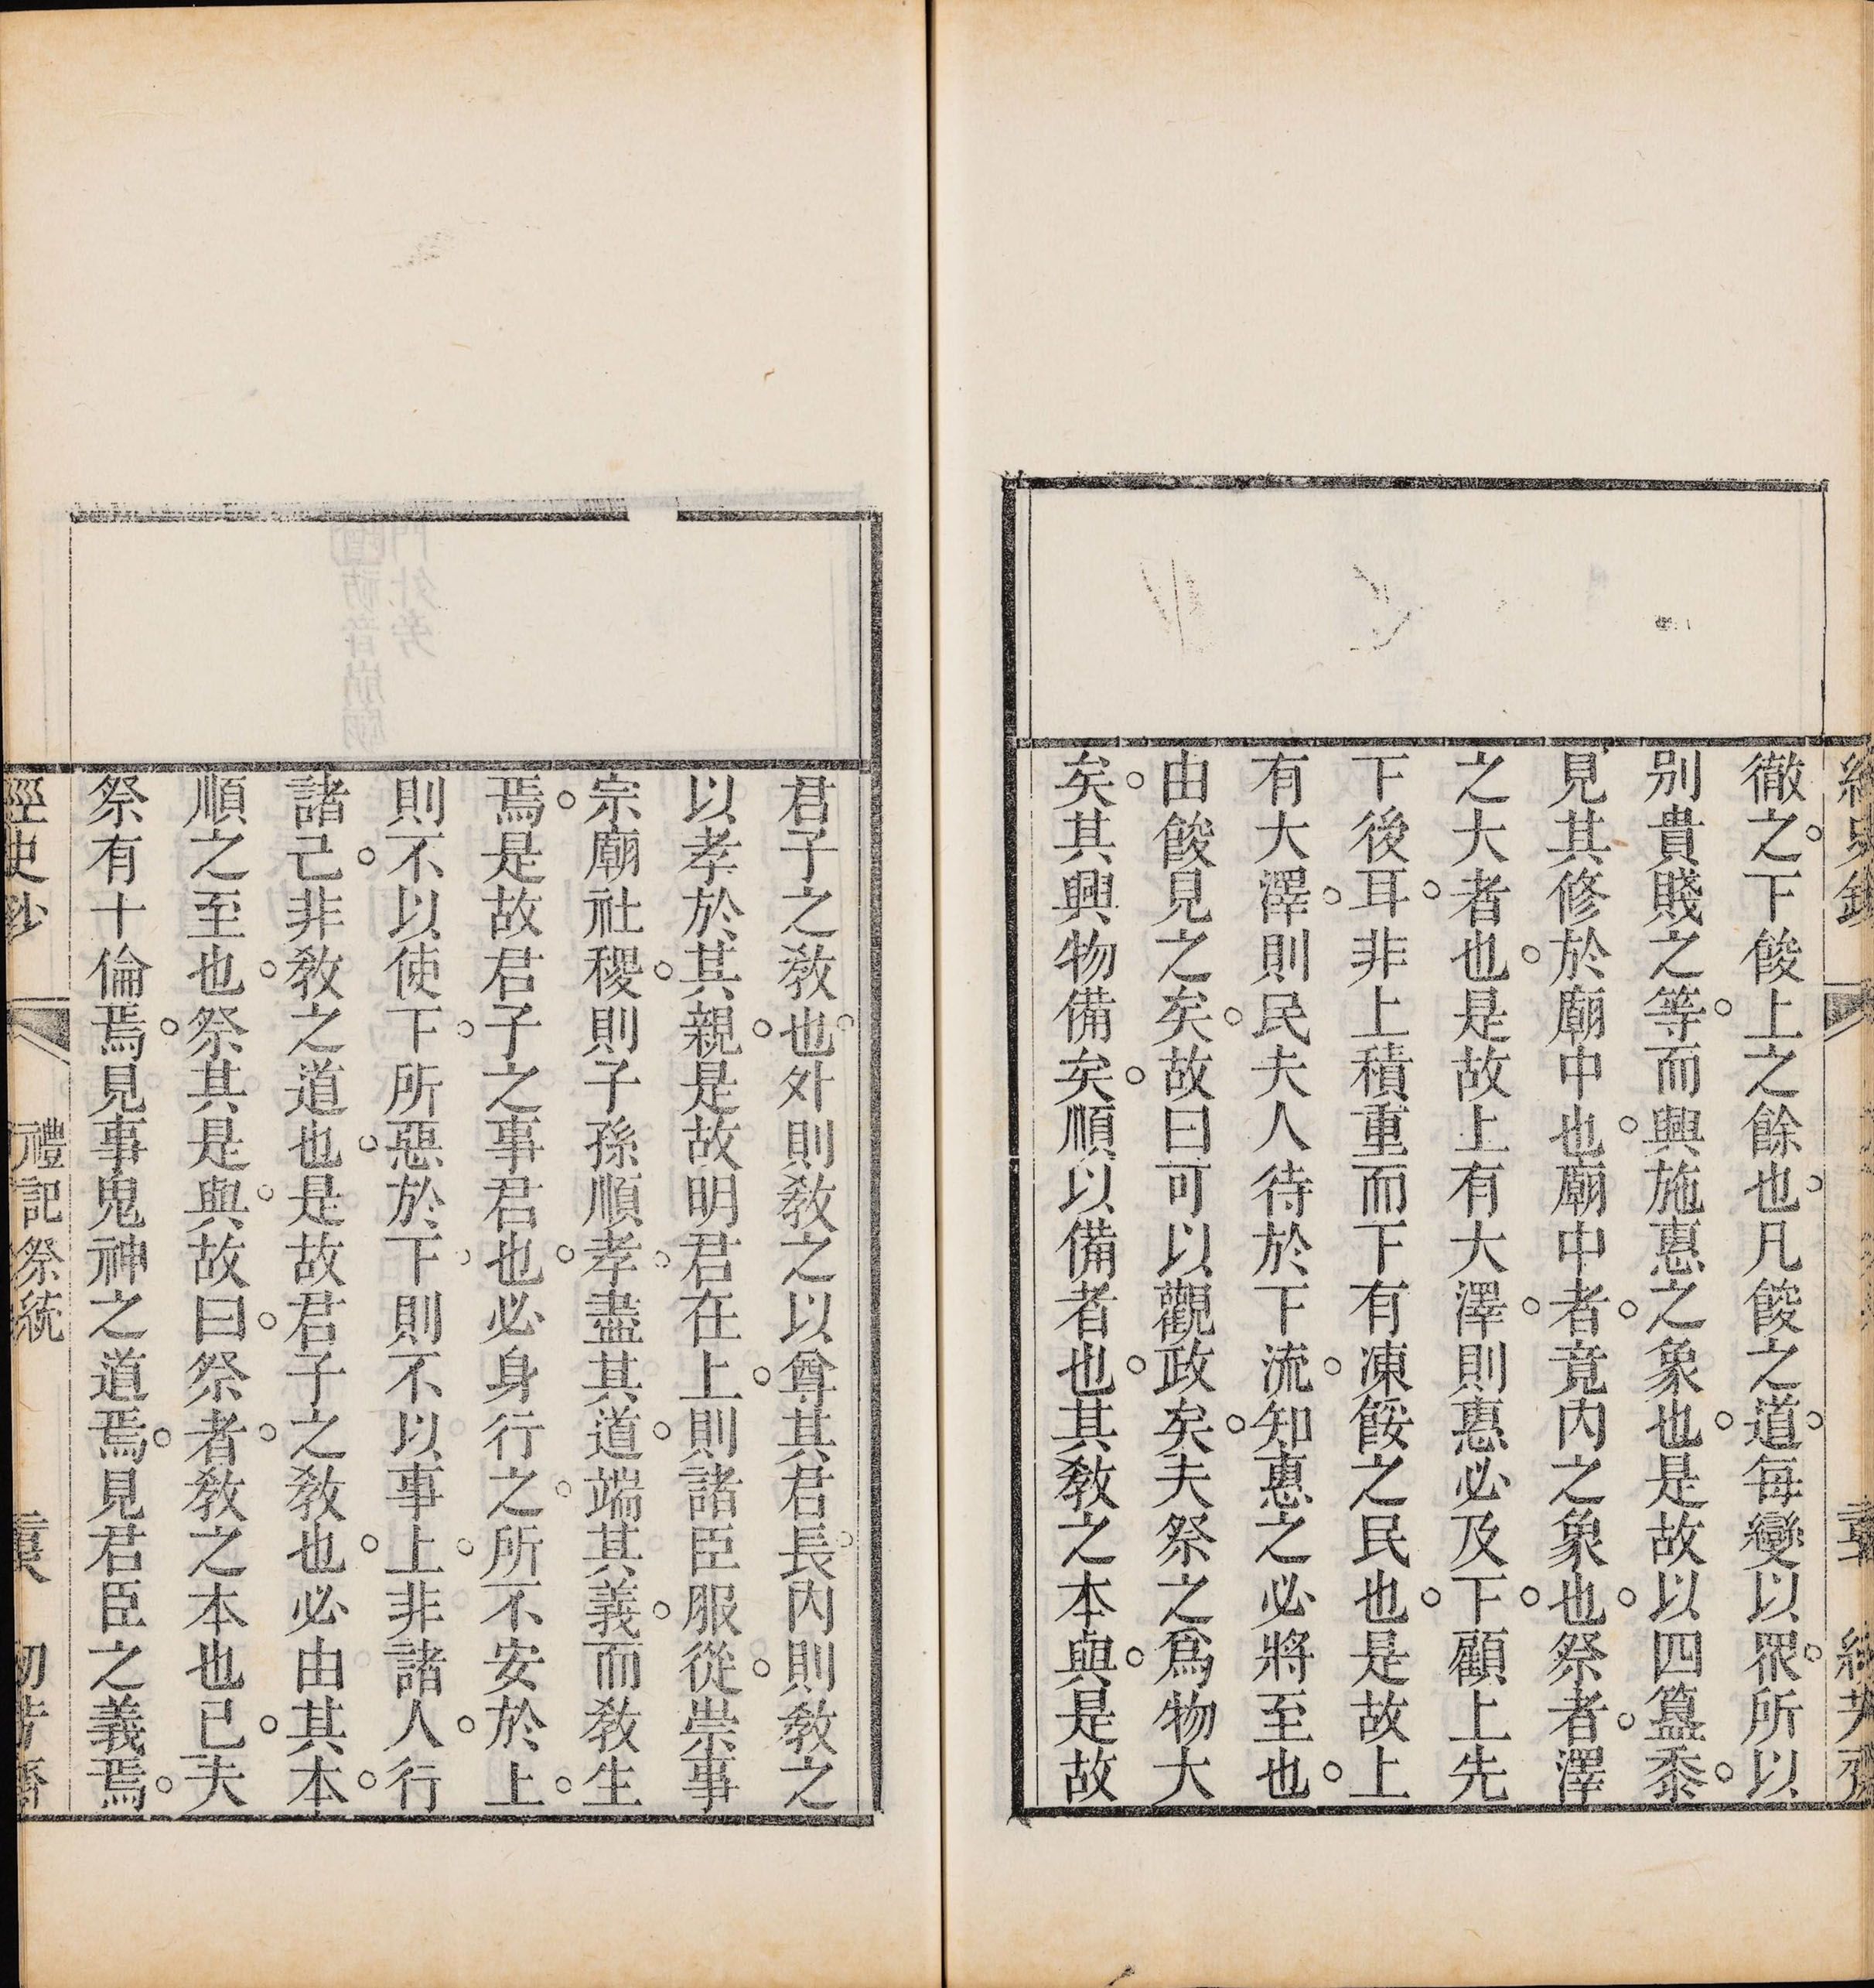 徹之下餕上之餘也凡餕之道每變以眾所以
别貴賤之等而興施惠之象也是故以四簋黍
見其修於廟中也廟中者竟内之象也祭者澤
之大者也是故上有大澤則惠必及下顧上先
下後耳非上積重而下有凍餒之民也是故上
有大澤則民夫人待於下流知惠之必將至也
由餕見之矣故曰可以觀政矣夫祭之爲物大
矣其興物備矣順以備者也其敎之本與是故
君子之敎也外則敎之以尊其君長内則敎之
以孝於其親是故明君在上則諸臣服從崇事
宗廟社稷則子孫順孝盡其道端其義而敎生
焉是故君子之事君也必身行之所不安於上
則不以使下所惡於下則不以事上非諸人行
諸己非敎之道也是故君子之敎也必由其本
順之至也祭其是與故曰祭者敎之本也已夫
祭有十倫焉見事鬼神之道焉見君臣之義焉
經史鈔 禮記祭統